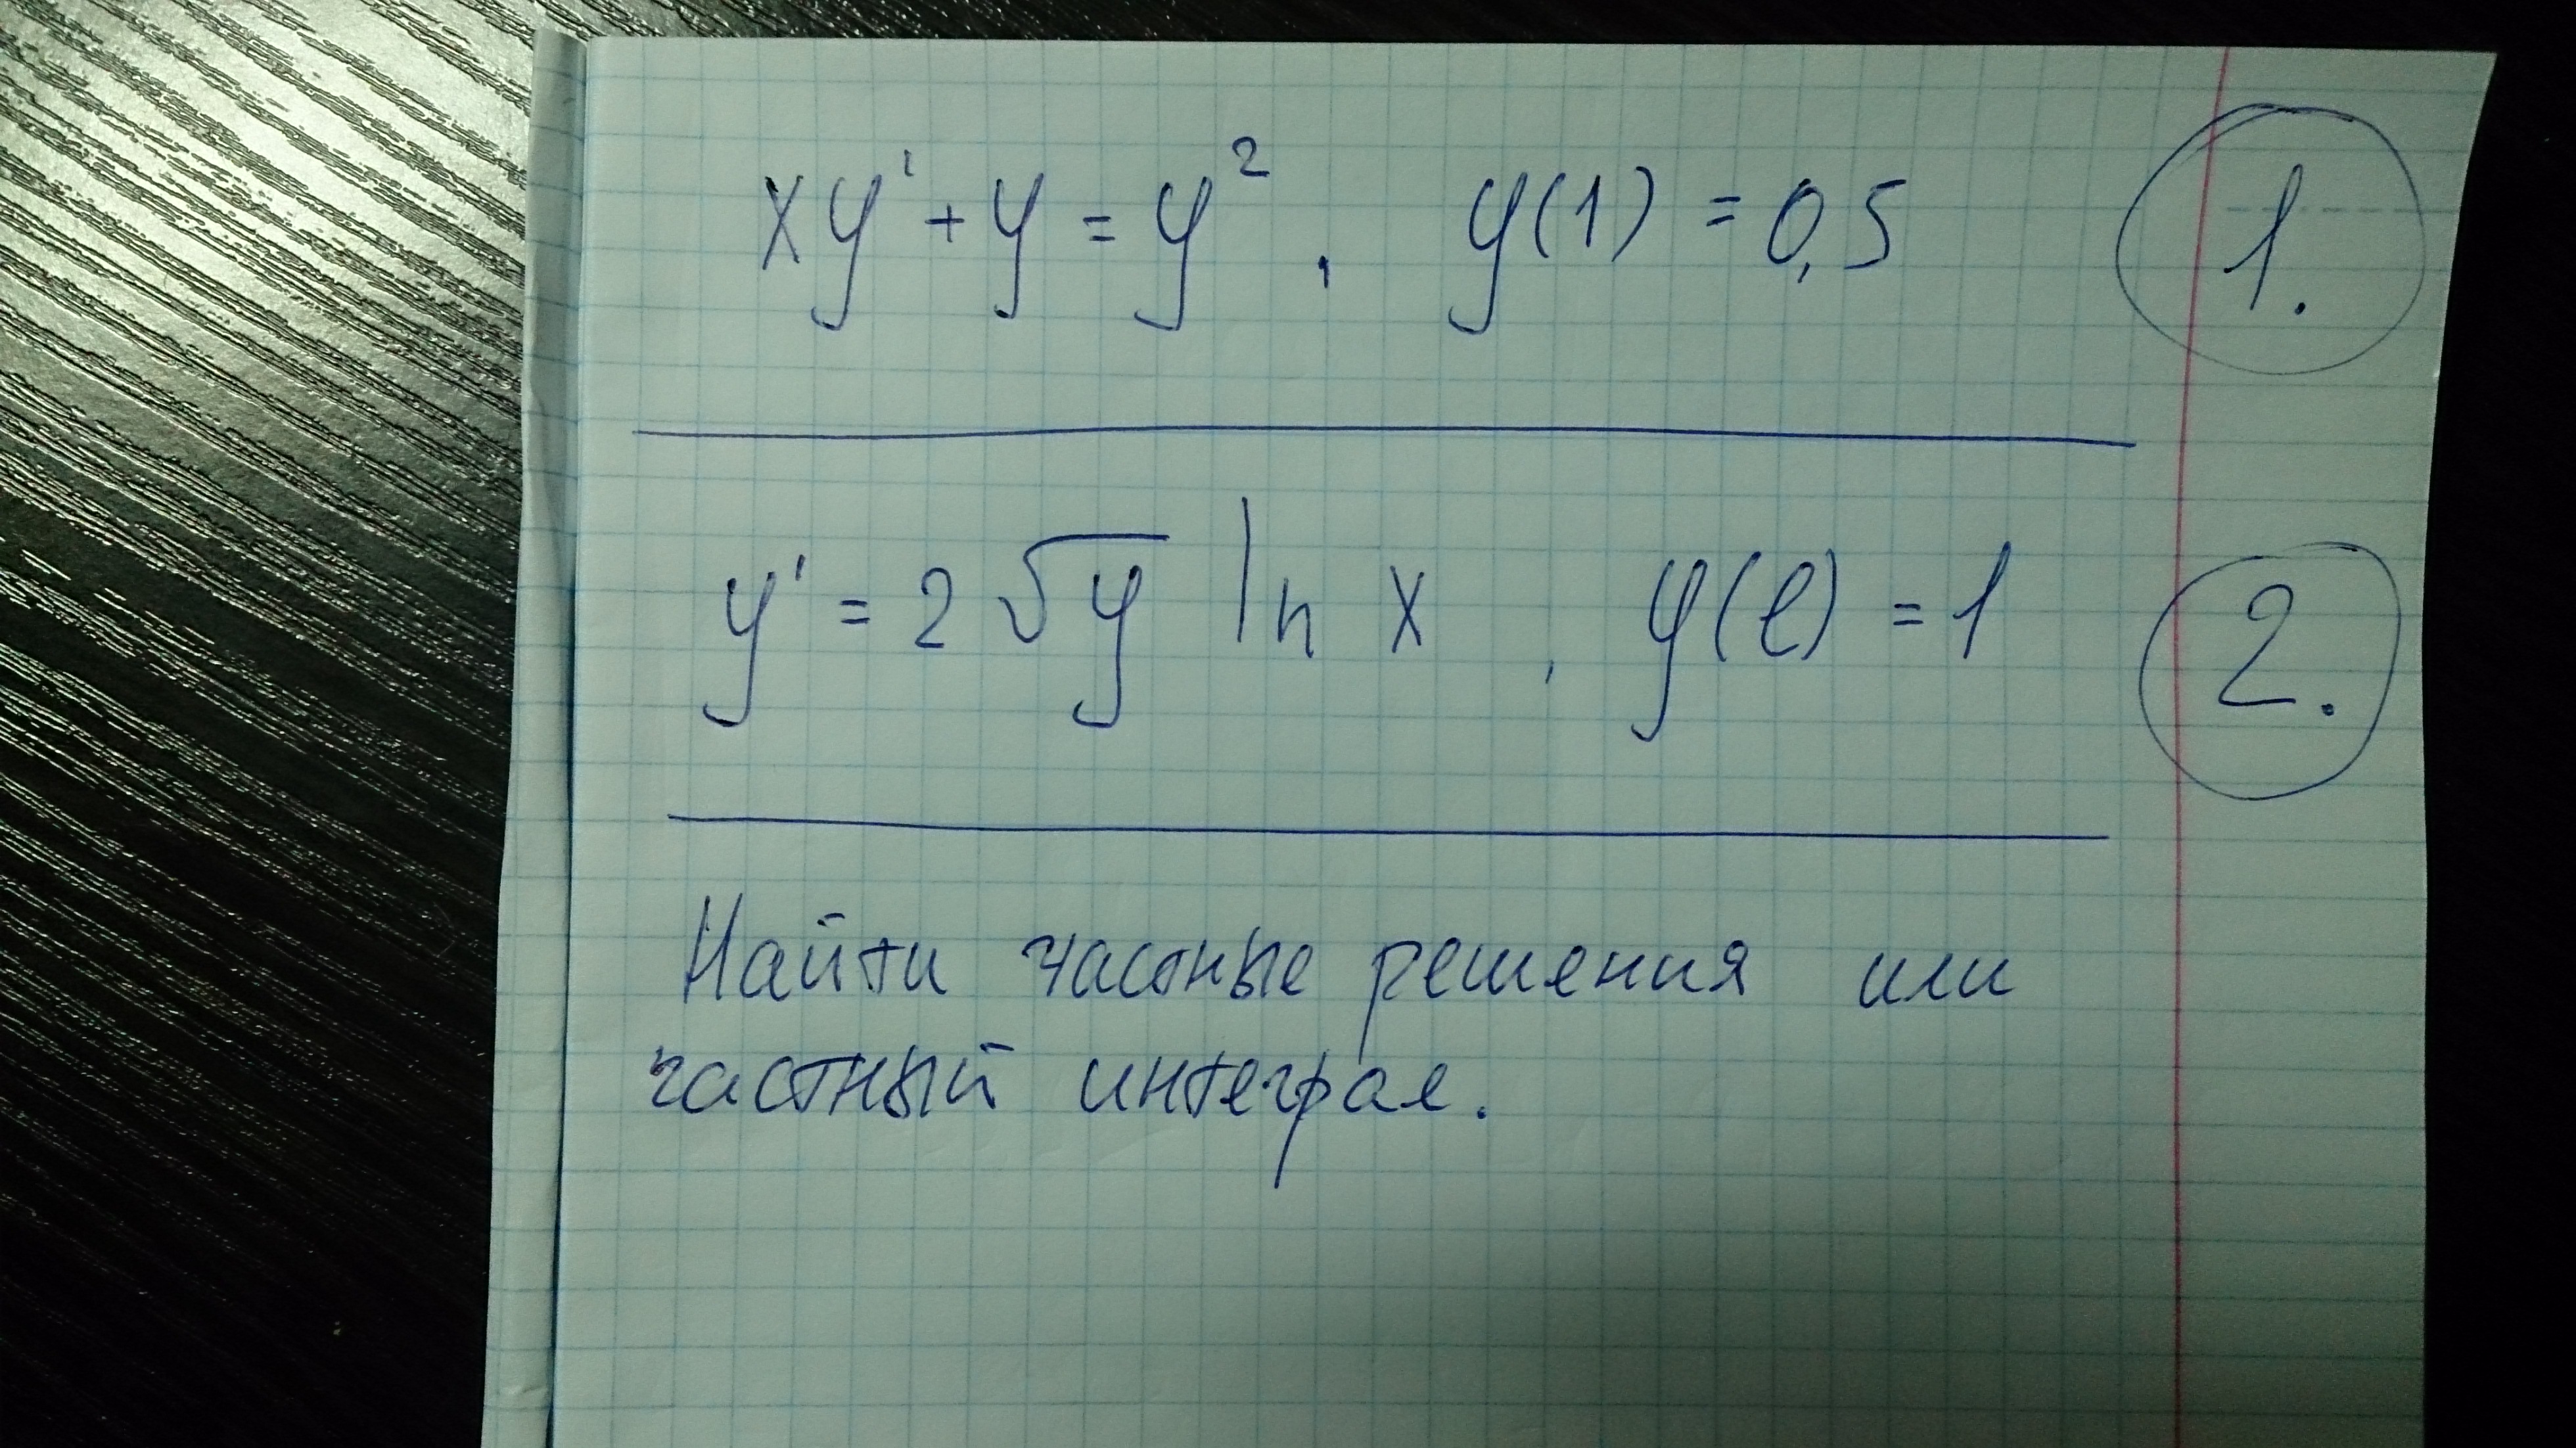 xy' + y = y², y(1) = 0,5 1.
y' = 2√y ln x, y(e) = 1 2.
Найти частные решения или
частный интеграл.